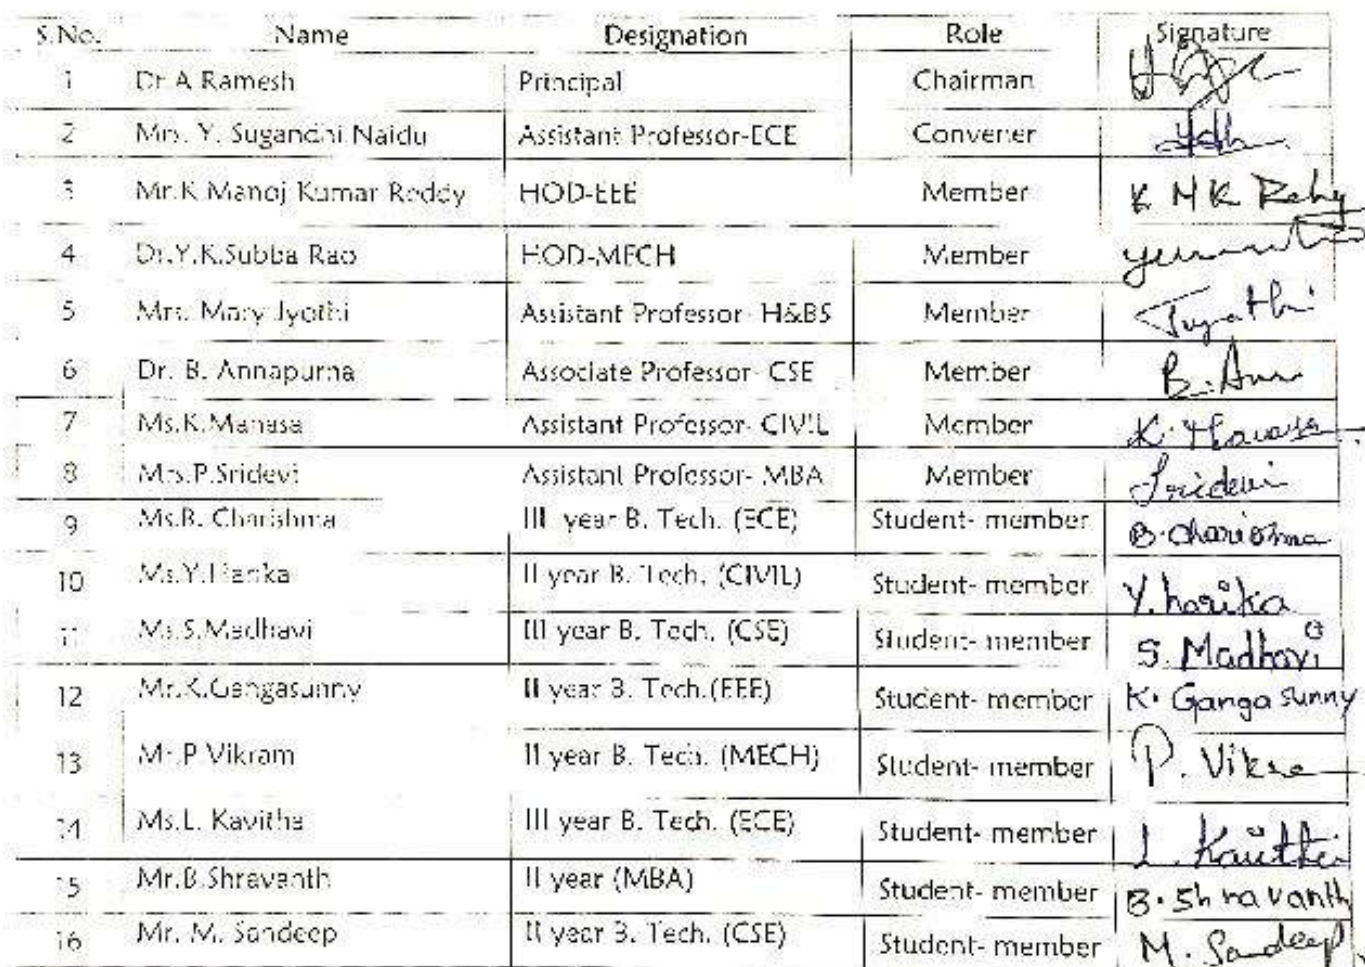 S.No. Name Designation Role Signature
1 Dr A Ramesh Principal Chairman
2 Mrs. Y. Sugandhi Naidu Assistant Professor-ECE Convener
3 Mr.K Manoj Kumar Reddy HOD-EEE Member K M K Reddy
4 Dr.Y.K.Subba Rao HOD-MECH Member
5 Mrs. Mary Jyothi Assistant Professor- H&BS Member
6 Dr. B. Annapurna Associate Professor- CSE Member B. Ann
7 Ms.K.Manasa Assistant Professor- CIVIL Member K. Manasa
8 Mrs.P.Sridevi Assistant Professor- MBA Member Sridevi
9 Ms.B. Charishma III year B. Tech. (ECE) Student- member B. Charishma
10 Ms.Y.Harika II year B. Tech. (CIVIL) Student- member Y. harika
11 Ms.S.Madhavi III year B. Tech. (CSE) Student- member S. Madhavi
12 Mr.K.Gangasunny II year B. Tech.(EEE) Student- member K. Ganga sunny
13 Mr.P.Vikram II year B. Tech. (MECH) Student- member P.
14 Ms.L. Kavitha III year B. Tech. (ECE) Student- member L.
15 Mr.B.Shravanth II year (MBA) Student- member B. Shravanth
16 Mr. M. Sandeep II year B. Tech. (CSE) Student- member M. Sandeep